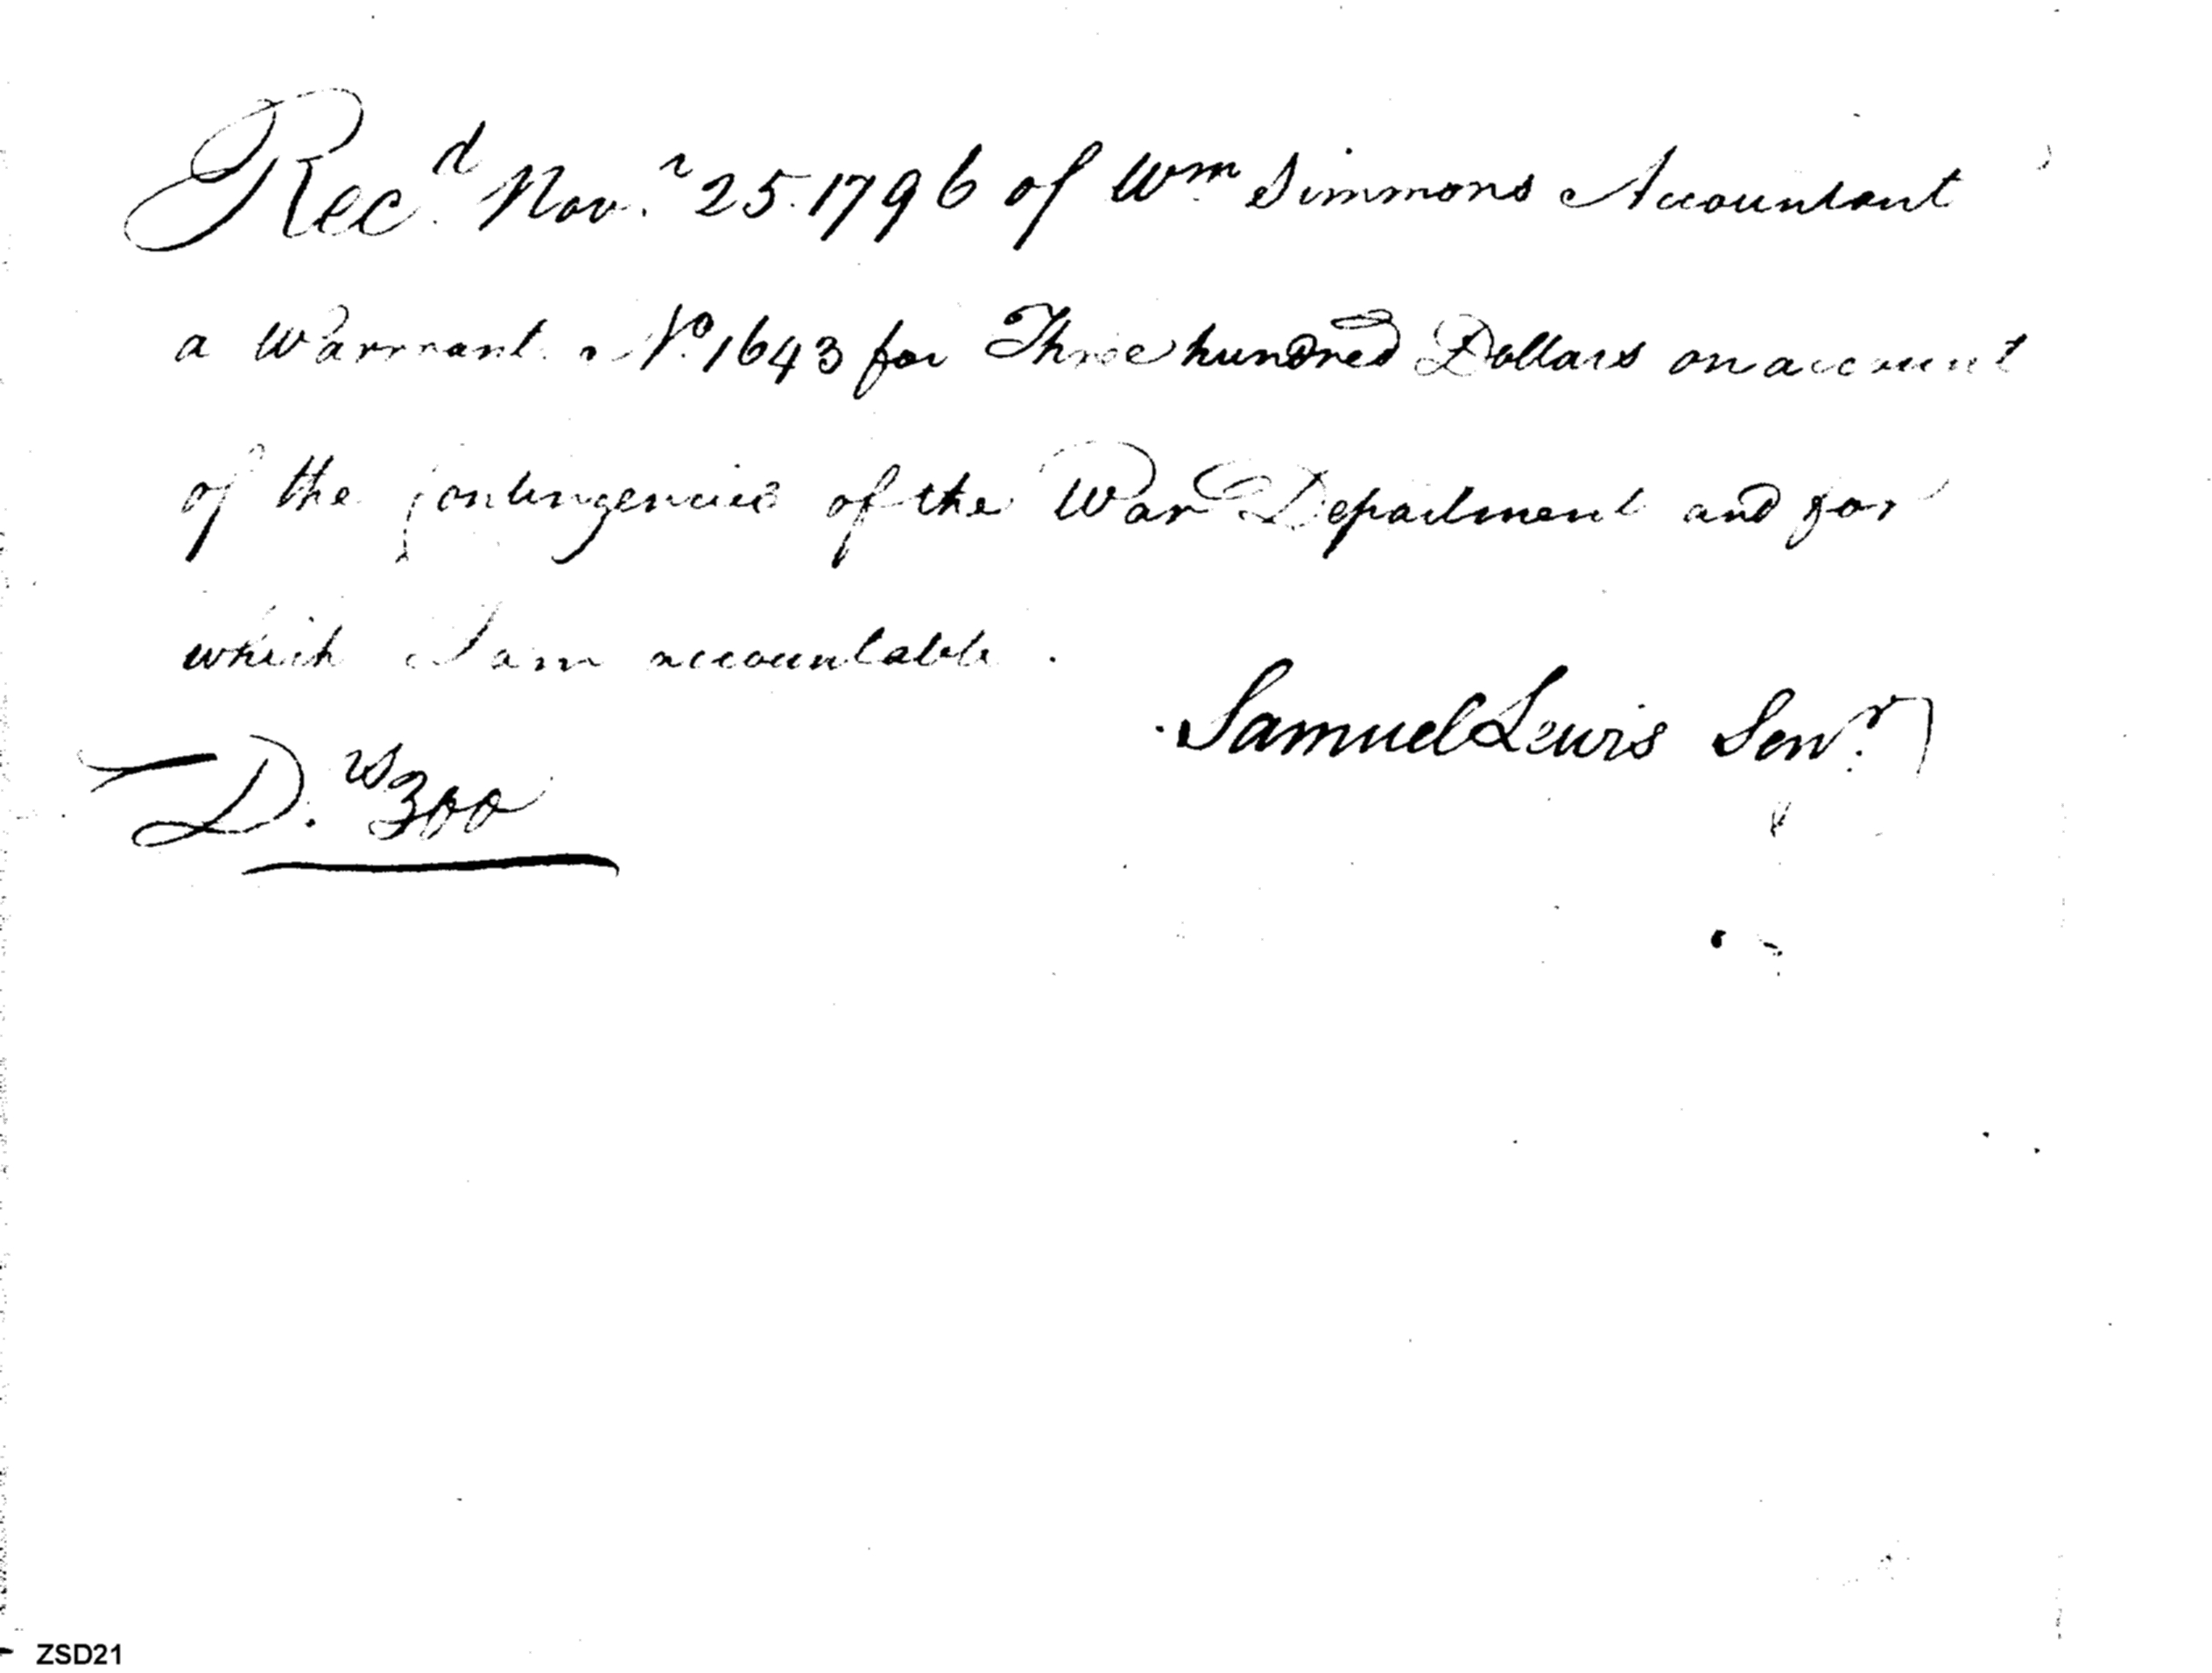 Rec.d Nov.r 25. 1796 of Wm Simmons Accountant
a Warrant No. 1643 for Three hundred Dollars on account
of the contingencies of the War Department and for
which I am accountable.
Samuel Lewis Senr.
D.rs 300
ZSD21